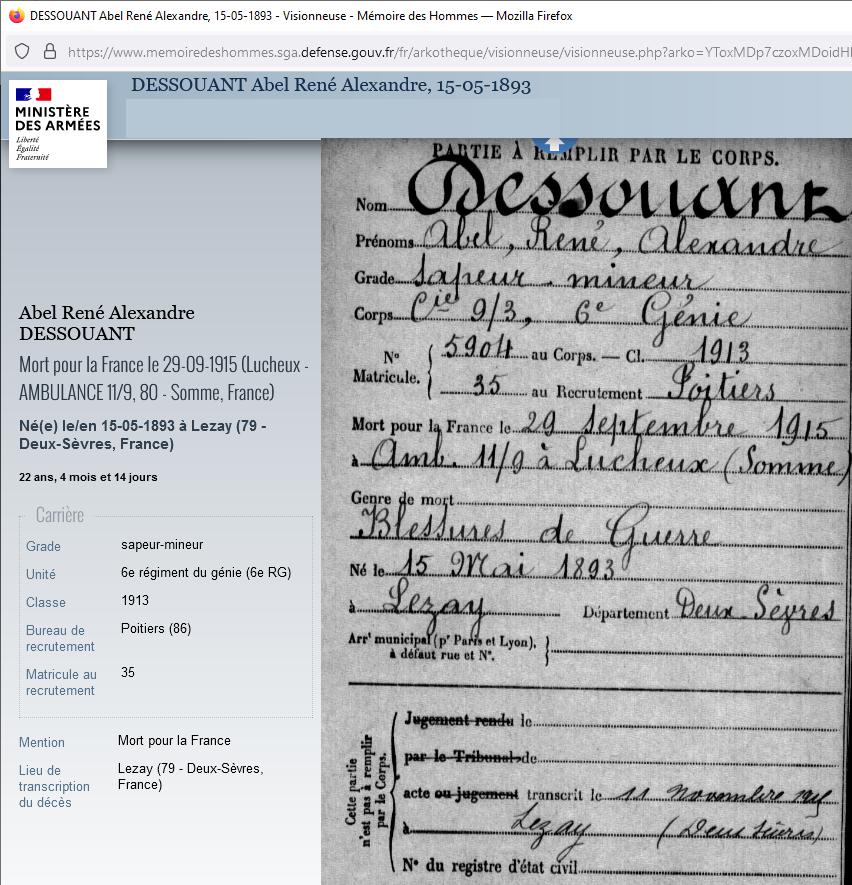 DESSOUANT Abel René Alexandre, 15-05-1893 - Visionneuse - Mémoire des Hommes — Mozilla Firefox
https://www.memoiredeshommes.sga.defense.gouv.fr/fr/arkotheque/visionneuse/visionneuse.php?arko=YToxMDp7czoxMDoidHl
DESSOUANT Abel René Alexandre, 15-05-1893
MINISTÈRE
DES ARMÉES
Liberté
Égalité
Fraternité
Abel René Alexandre
DESSOUANT
Mort pour la France le 29-09-1915 (Lucheux -
AMBULANCE 11/9, 80 - Somme, France)
Né(e) le/en 15-05-1893 à Lezay (79 -
Deux-Sèvres, France)
22 ans, 4 mois et 14 jours
Carrière
Grade sapeur-mineur
Unité 6e régiment du génie (6e RG)
Classe 1913
Bureau de recrutement Poitiers (86)
Matricule au recrutement 35
Mention Mort pour la France
Lieu de transcription du décès Lezay (79 - Deux-Sèvres, France)
PARTIE À REMPLIR PAR LE CORPS.
Nom Dessouant
Prénoms Abel, René, Alexandre
Grade sapeur-mineur
Corps Cie 9/3, 6e Génie
N° 5904 au Corps. — Cl. 1913
Matricule. 35 au Recrutement Poitiers
Mort pour la France le 29 Septembre 1915
à Amb. 11/9 à Lucheux (Somme)
Genre de mort
Blessures de Guerre
Né le 15 Mai 1893
à Lezay Département Deux Sèvres
Arrt municipal (pr Paris et Lyon),
à défaut rue et N°.
Cette partie
n'est pas à remplir
par le Corps.
Jugement rendu le
par le Tribunal de
acte ou jugement transcrit le 11 novembre 1915
à Lezay (Deux Sèvres)
N° du registre d'état civil